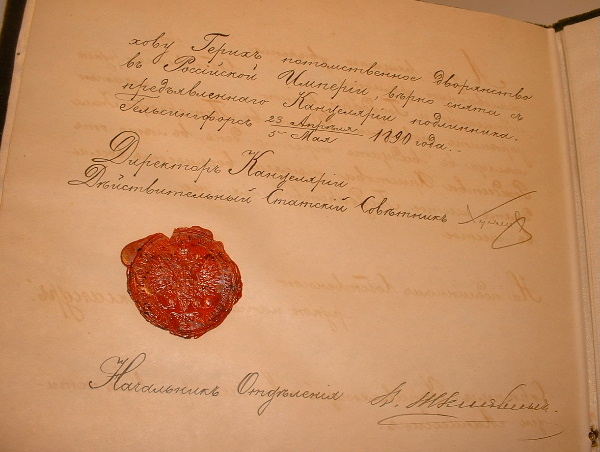 хову Герихъ потомственное дворянство
въ Россійской Имперіи, вѣрно снята съ
предъявленнаго Канцеляріи подлинника.
Гельсингфорсъ 23 Апрѣля / 5 Мая 1890 года.
Директоръ Канцеляріи
Дѣйствительный Статскій Совѣтникъ
Начальникъ Отдѣленія